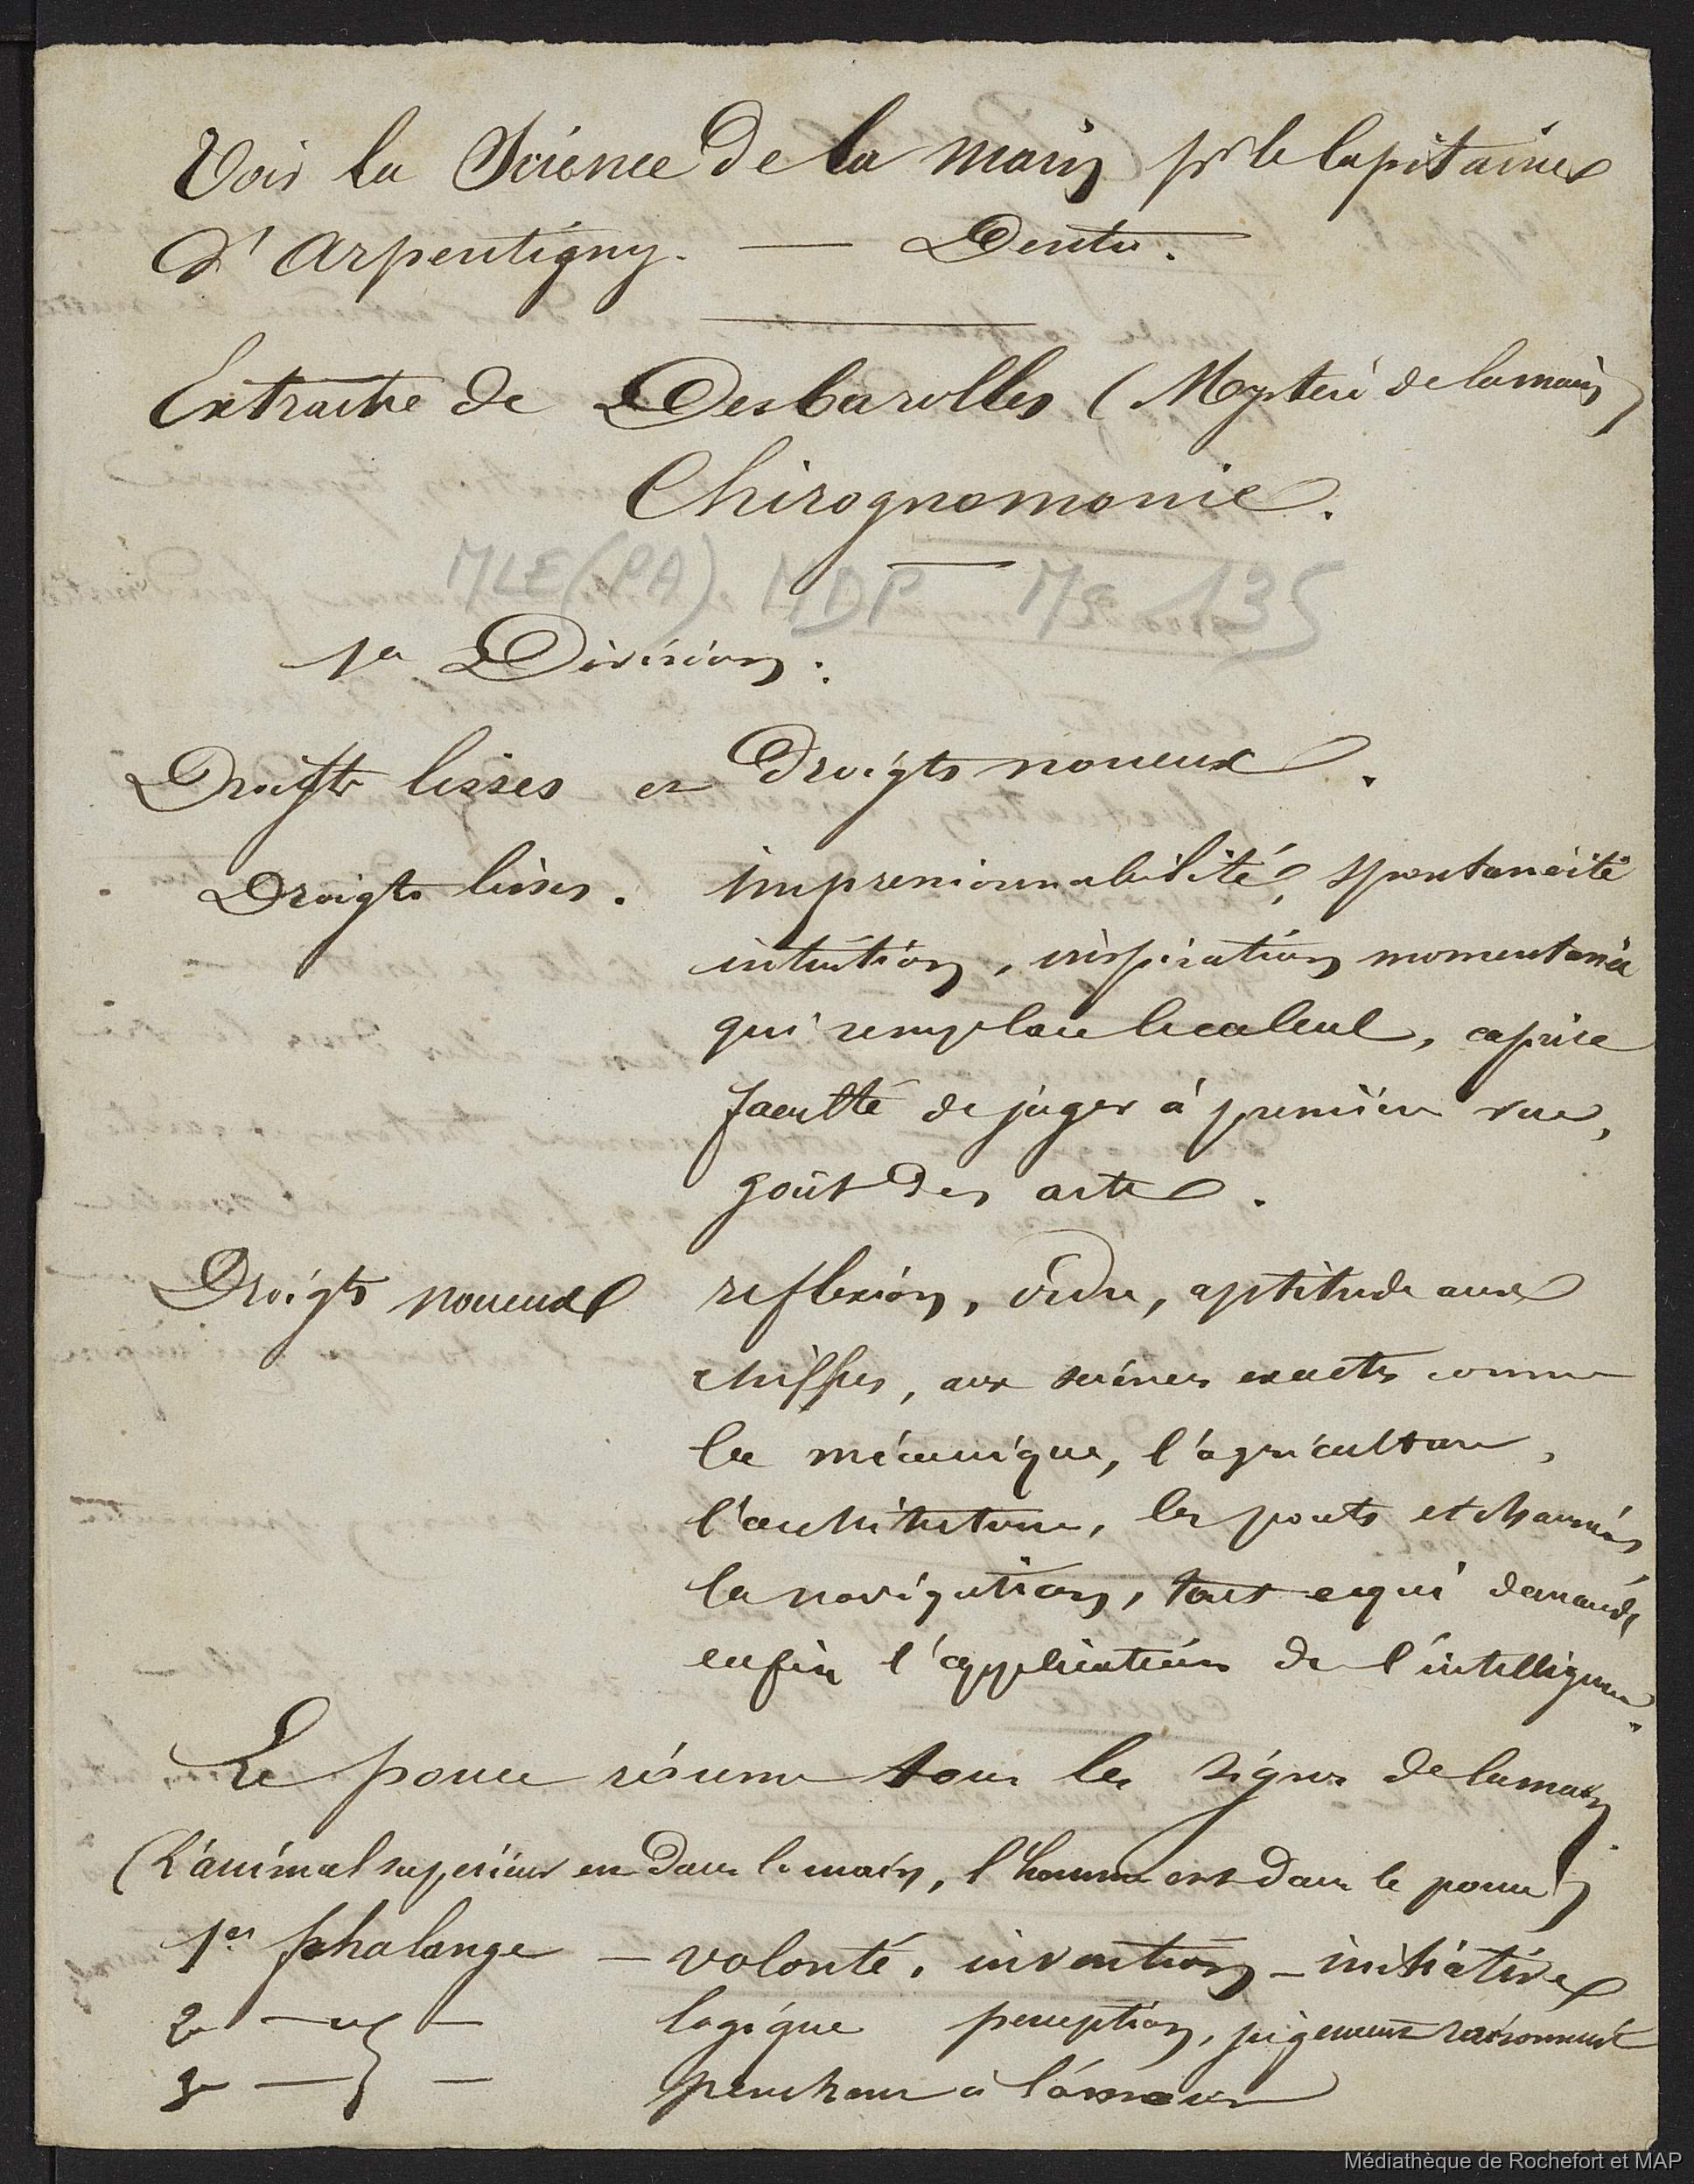 Voir la Science de la main pr le Capitaine
d'Arpentigny. — Dentu.
Extraite de Desbarolles (Mystère de la main)
Chirognomonie.
MLE (PA) MDP Ms 135
1re Division :
Droigts lisses et Droigts noueux.
Droigts lisses. impressionnabilité, spontanéité
intuition, inspiration momentanée
qui remplace le calcul, caprice
faculté de juger à première vue,
goût des arts.
Droigts noueux reflexion, ordre, aptitude aux
chiffres, aux sciences exactes comme
la mécanique, l'agriculture,
l'architecture, les ponts et chaussées
la navigation, tout ce qui demande
enfin l'application de l'intelligence.
Le pouce résume tous les signes de la main.
(L'animal supérieur est dans la main, l'homme est dans le pouce)
1er phalange — volonté, invention — initiative
2e — — logique perception, jugement raisonnement
3e — — penchant à l'amour
Médiathèque de Rochefort et MAP